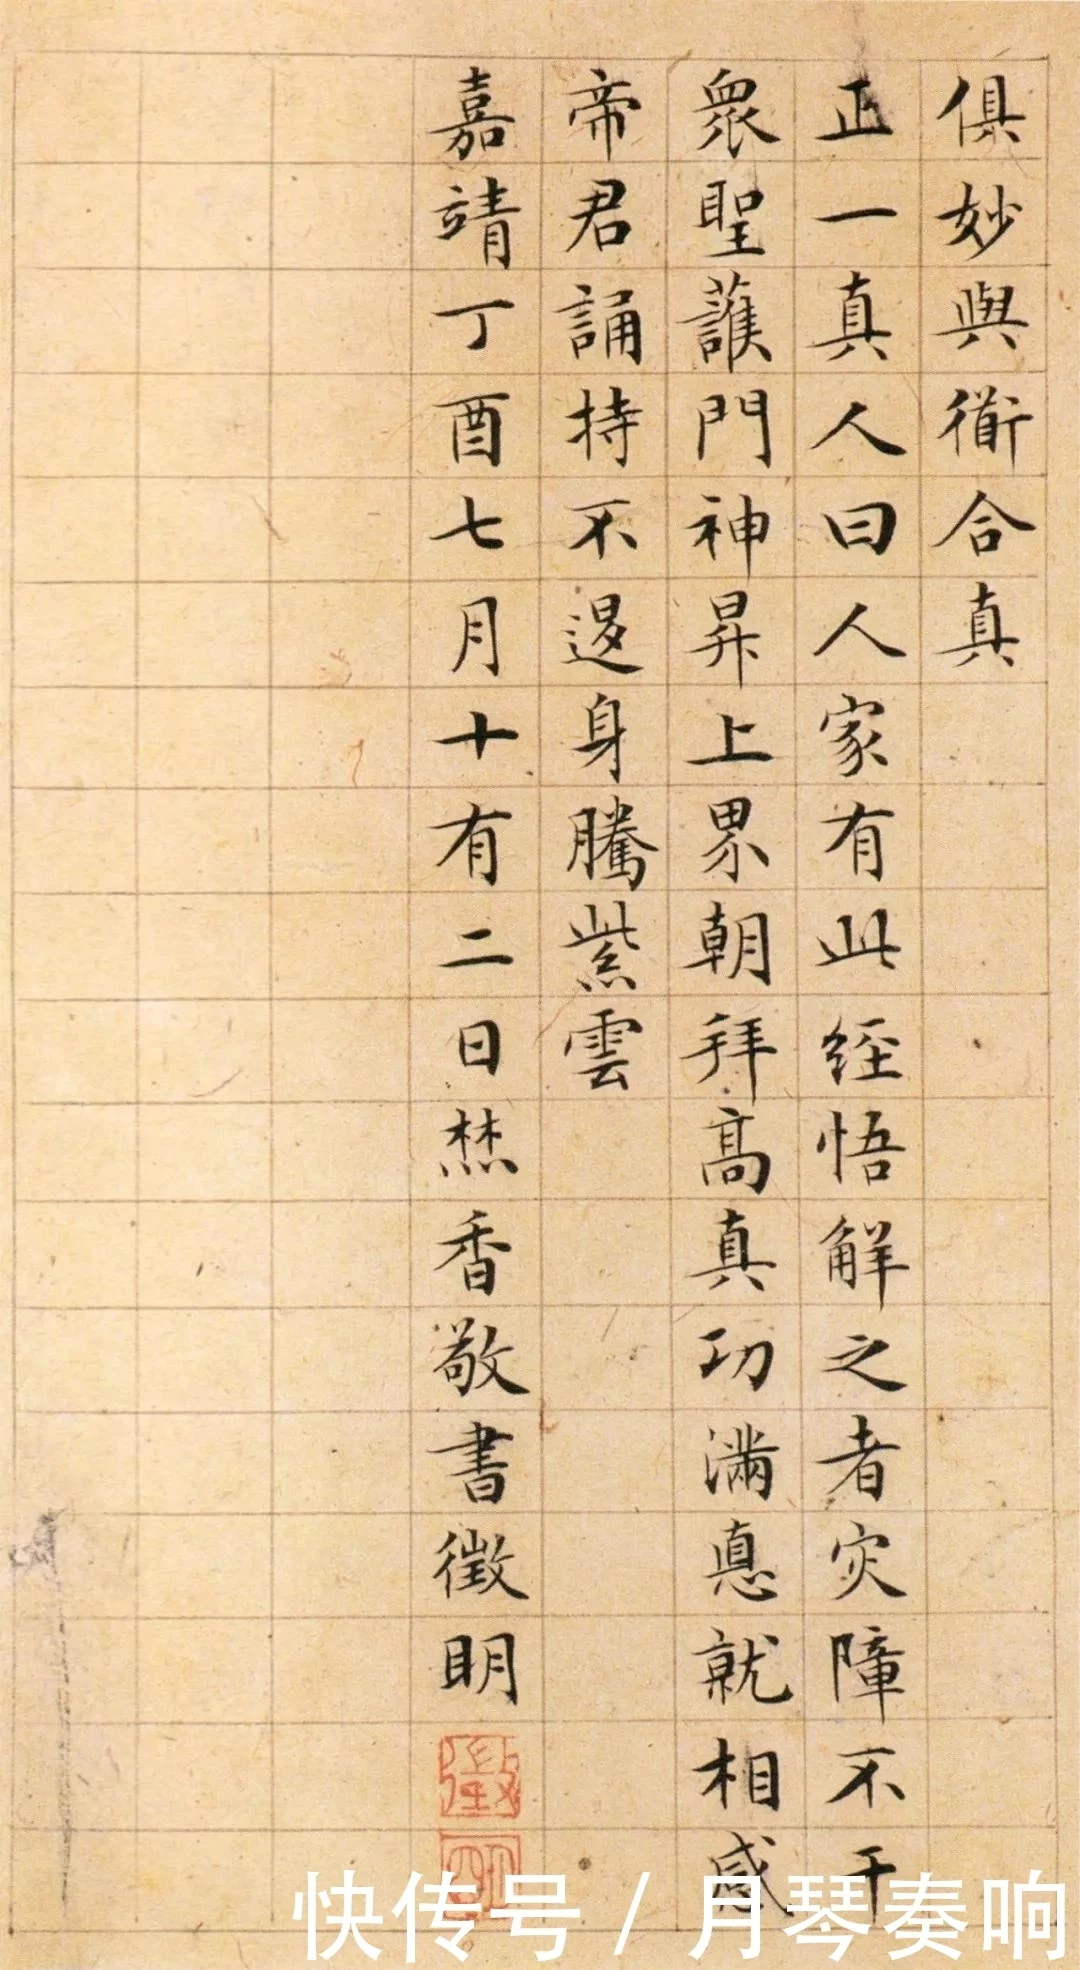 俱妙與衜合真
正一真人曰人家有此經悟解之者灾障不干
衆聖護門神昇上界朝拜高真功滿惪就相感
帝君誦持不退身騰紫雲
嘉靖丁酉七月十有二日焚香敬書徵明
徵
明
快传号/月琴奏响